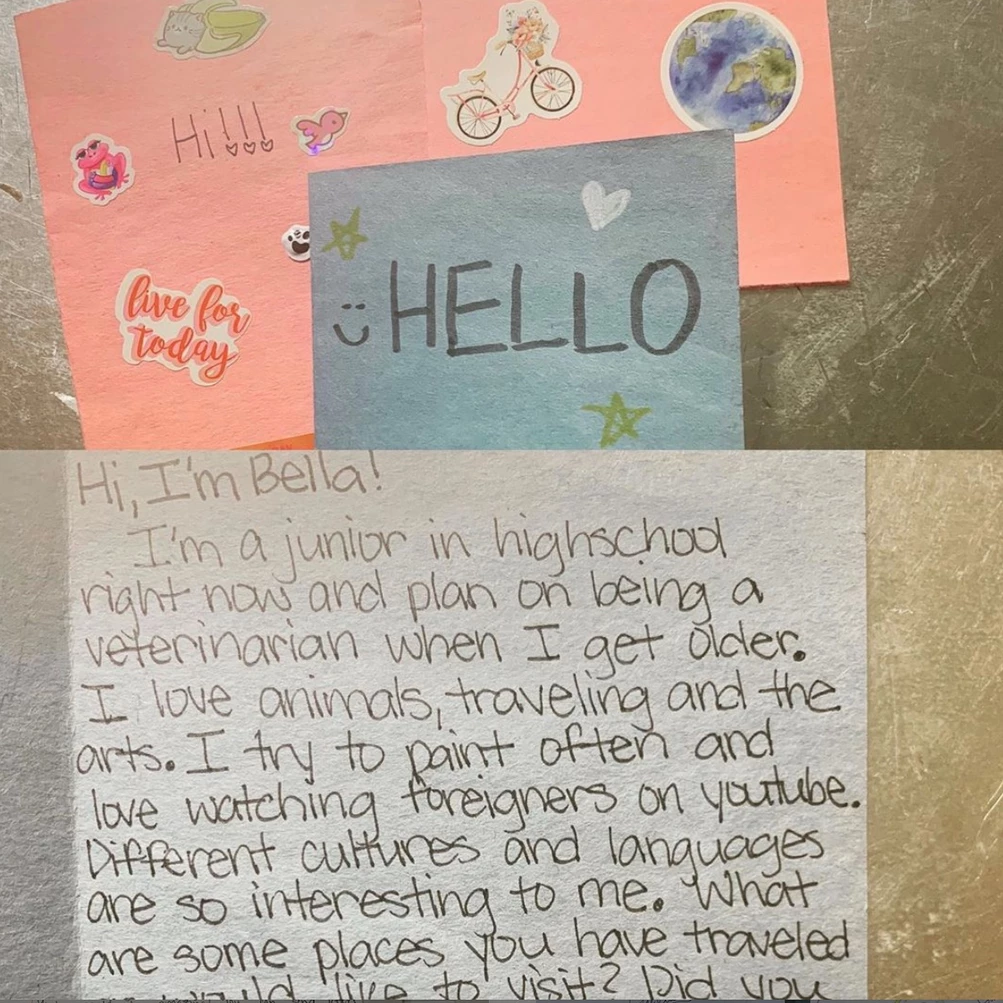 Hi!!!
live for
today
HELLO
Hi, I'm Bella!
I'm a junior in highschool
right now and plan on being a
veterinarian when I get older.
I love animals, traveling and the
arts. I try to paint often and
love watching foreigners on youtube.
Different cultures and languages
are so interesting to me. What
are some places you have traveled
would like to visit? Did you